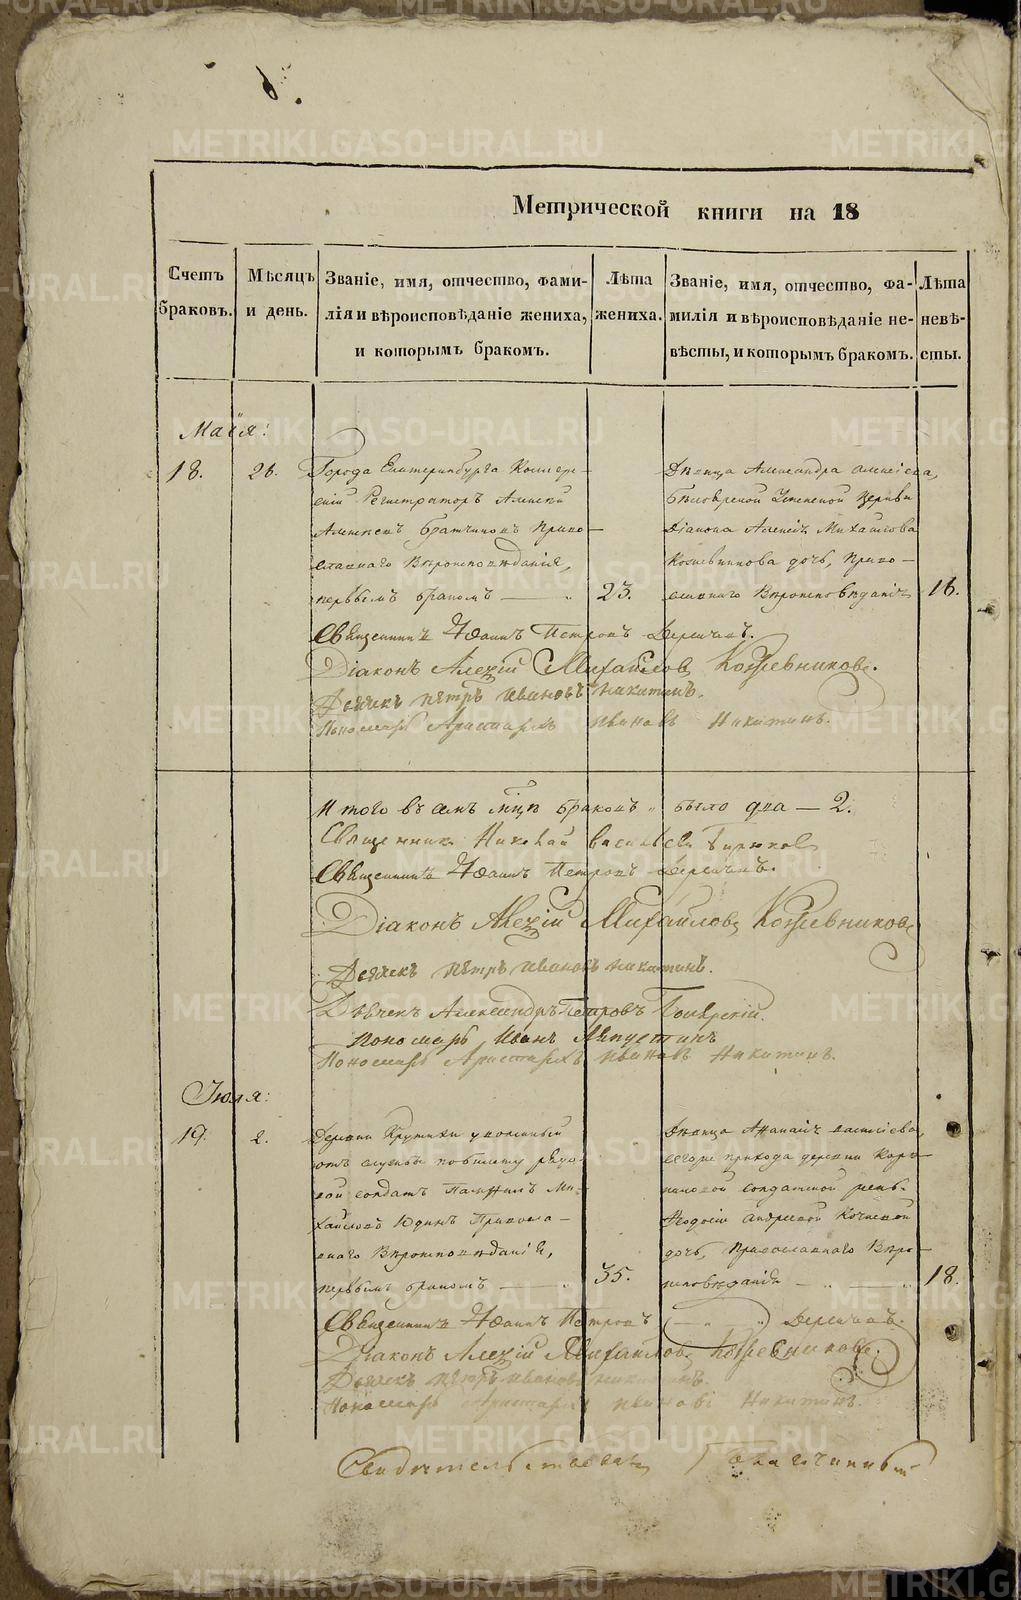 Метрической книги на 18
Счетъ браковъ.
Мѣсяцъ и день.
Званіе, имя, отчество, фами-
лія и вѣроисповѣданіе жениха,
и которымъ бракомъ.
Лѣта жениха.
Званіе, имя, отчество, фа-
милія и вѣроисповѣданіе не-
вѣсты, и которымъ бракомъ.
Лѣта невѣ-
сты.
Маія:
18.
26.
Города Екатеринбурга Коллеж-
скій Регистраторъ Алексѣй
Алексѣевъ Братчиковъ Право-
славнаго Вѣроисповѣданія,
первымъ бракомъ —
23.
Дѣвица Александра Алексіева,
Бѣлоярской Церкви
Діакона Алексія Михайлова
Кожевникова дочь, Право-
славнаго Вѣроисповѣданія
16.
Священникъ Іоаннъ Петровъ
Діаконъ Алексій Михайловъ Кожевниковъ.
Дьячекъ Петръ Ивановъ Никитинъ.
Пономарь Аристархъ Ивановъ Никитинъ.
Итого въ семъ мцѣ браковъ было два — 2.
Священникъ Николай Васильевъ Бирюковъ
Священникъ Іоаннъ Петровъ
Діаконъ Алексій Михайловъ Кожевниковъ
Дьячекъ Петръ Ивановъ Никитинъ.
Дьячекъ Александръ Петровъ
Пономарь Иванъ
Пономарь Аристархъ Ивановъ Никитинъ.
Іюля:
19.
2.
Деревни Крутихи уволенный
отъ службы по билету рядо-
вой солдатъ Ми-
хайловъ Юдинъ Правосла-
внаго Вѣроисповѣданія,
первымъ бракомъ —
35.
Дѣвица Василіева,
сего прихода деревни
солдатской
Андреевой
дочь, Православнаго Вѣро-
исповѣданія —
18.
Священникъ Іоаннъ Петровъ
Діаконъ Алексій Михайловъ Кожевниковъ.
Дьячекъ Петръ Ивановъ Никитинъ.
Пономарь Аристархъ Ивановъ Никитинъ.
Свидѣтельствовалъ Благочинный
METRIKI.GASO-URAL.RU